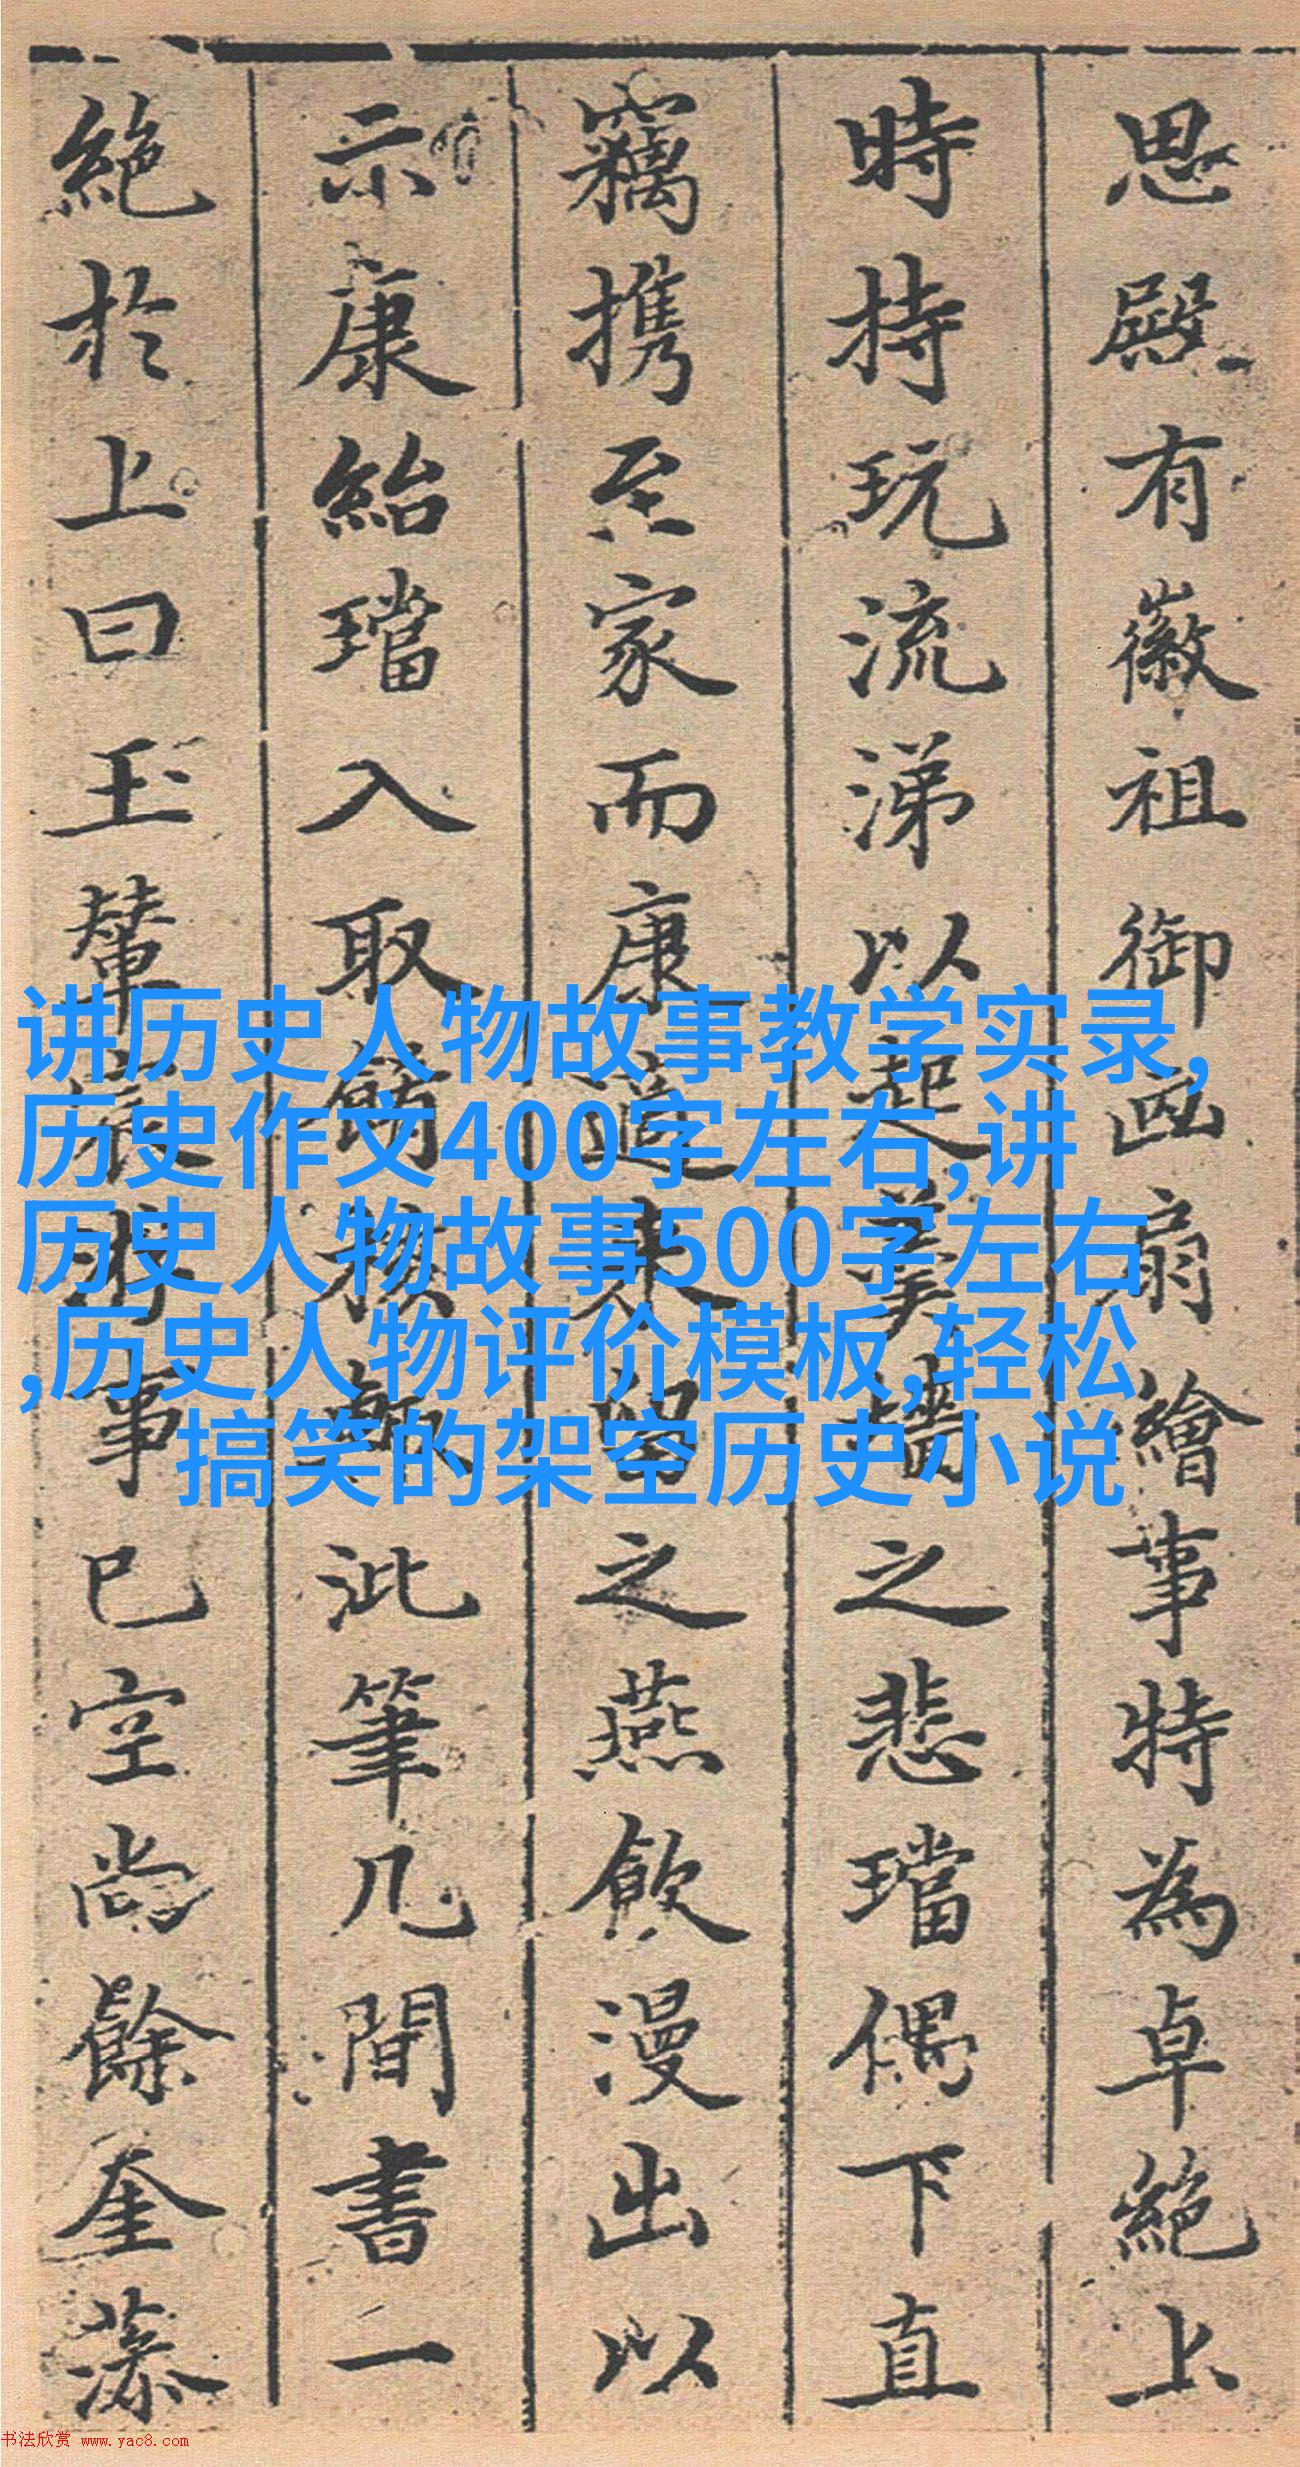 思殿有徽祖御画扇繪事特為卓絕上
時持玩流涕以起羹墻之悲璫偶下直
竊携至家而康適来留之燕飲漫出以
示康紿璫入取殽核輙泚筆几間書一
絕於上曰玉輦宸遊事已空尚餘奎藻
讲历史人物故事教学实录,
历史作文400字左右,讲
历史人物故事500字左右
,历史人物评价模板,轻松
搞笑的架空历史小说
书法欣赏 www.yac8.com